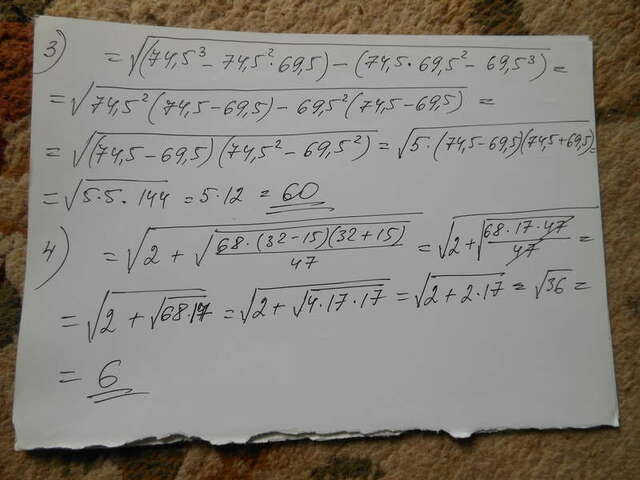 3) = √(74,5³ − 74,5² · 69,5) − (74,5 · 69,5² − 69,5³) =
= √74,5² (74,5 − 69,5) − 69,5² (74,5 − 69,5) =
= √(74,5 − 69,5) (74,5² − 69,5²) = √5 · (74,5 − 69,5)(74,5 + 69,5) =
= √5 · 5 · 144 = 5 · 12 = 60
4) = √2 + √68 · (32 − 15)(32 + 15) / 47 = √2 + √68 · 17 · 47 / 47 =
= √2 + √68 · 17 = √2 + √4 · 17 · 17 = √2 + 2 · 17 = √36 =
= 6